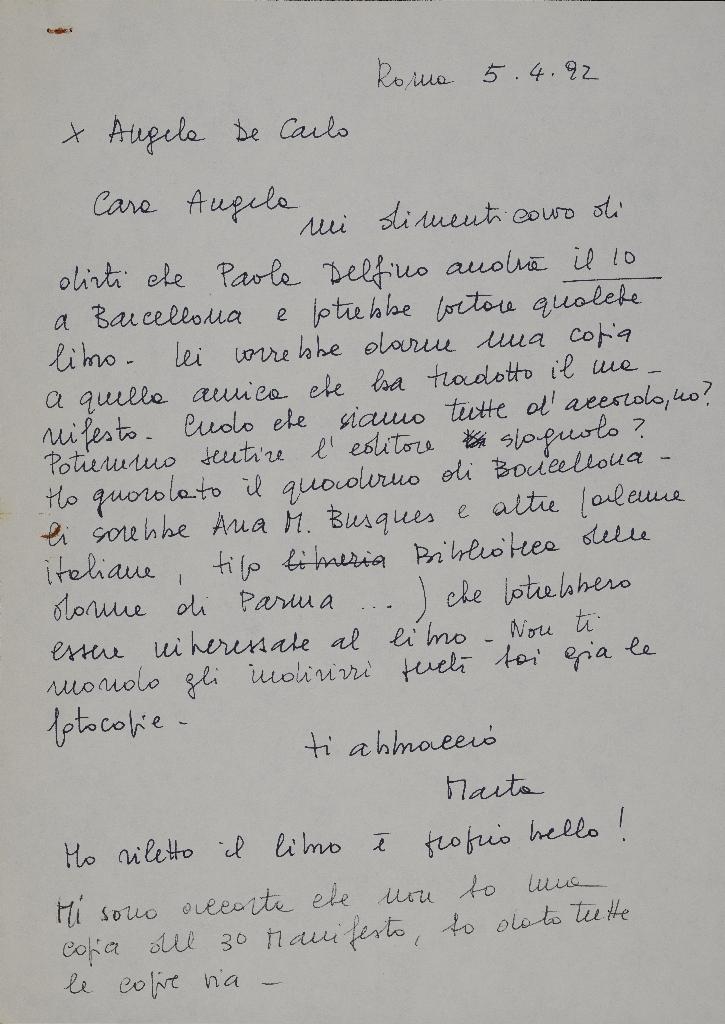 Roma 5.4.92
x Angela De Carlo
Cara Angela
mi dimenticavo di
dirti che Paola Delfino andrà il 10
a Barcellona e potrebbe portare qualche
libro - Lei vorrebbe darne una copia
a quella amica che ha tradotto il ma-
nifesto - Credo che siamo tutte d'accordo, no?
Potremmo sentire l'editore spagnolo?
Ho guardato il quaderno di Barcellona -
Ci sarebbe Ana M. Busques e altre (alcune
italiane, tipo libreria Biblioteca delle
donne di Parma ...) che potrebbero
essere interessate al libro - Non ti
mando gli indirizzi perché hai già le
fotocopie -
ti abbraccio
Marta
Ho riletto il libro è proprio bello!
Mi sono accorta che non ho una
copia del 3° Manifesto, ho dato tutte
le copie via -